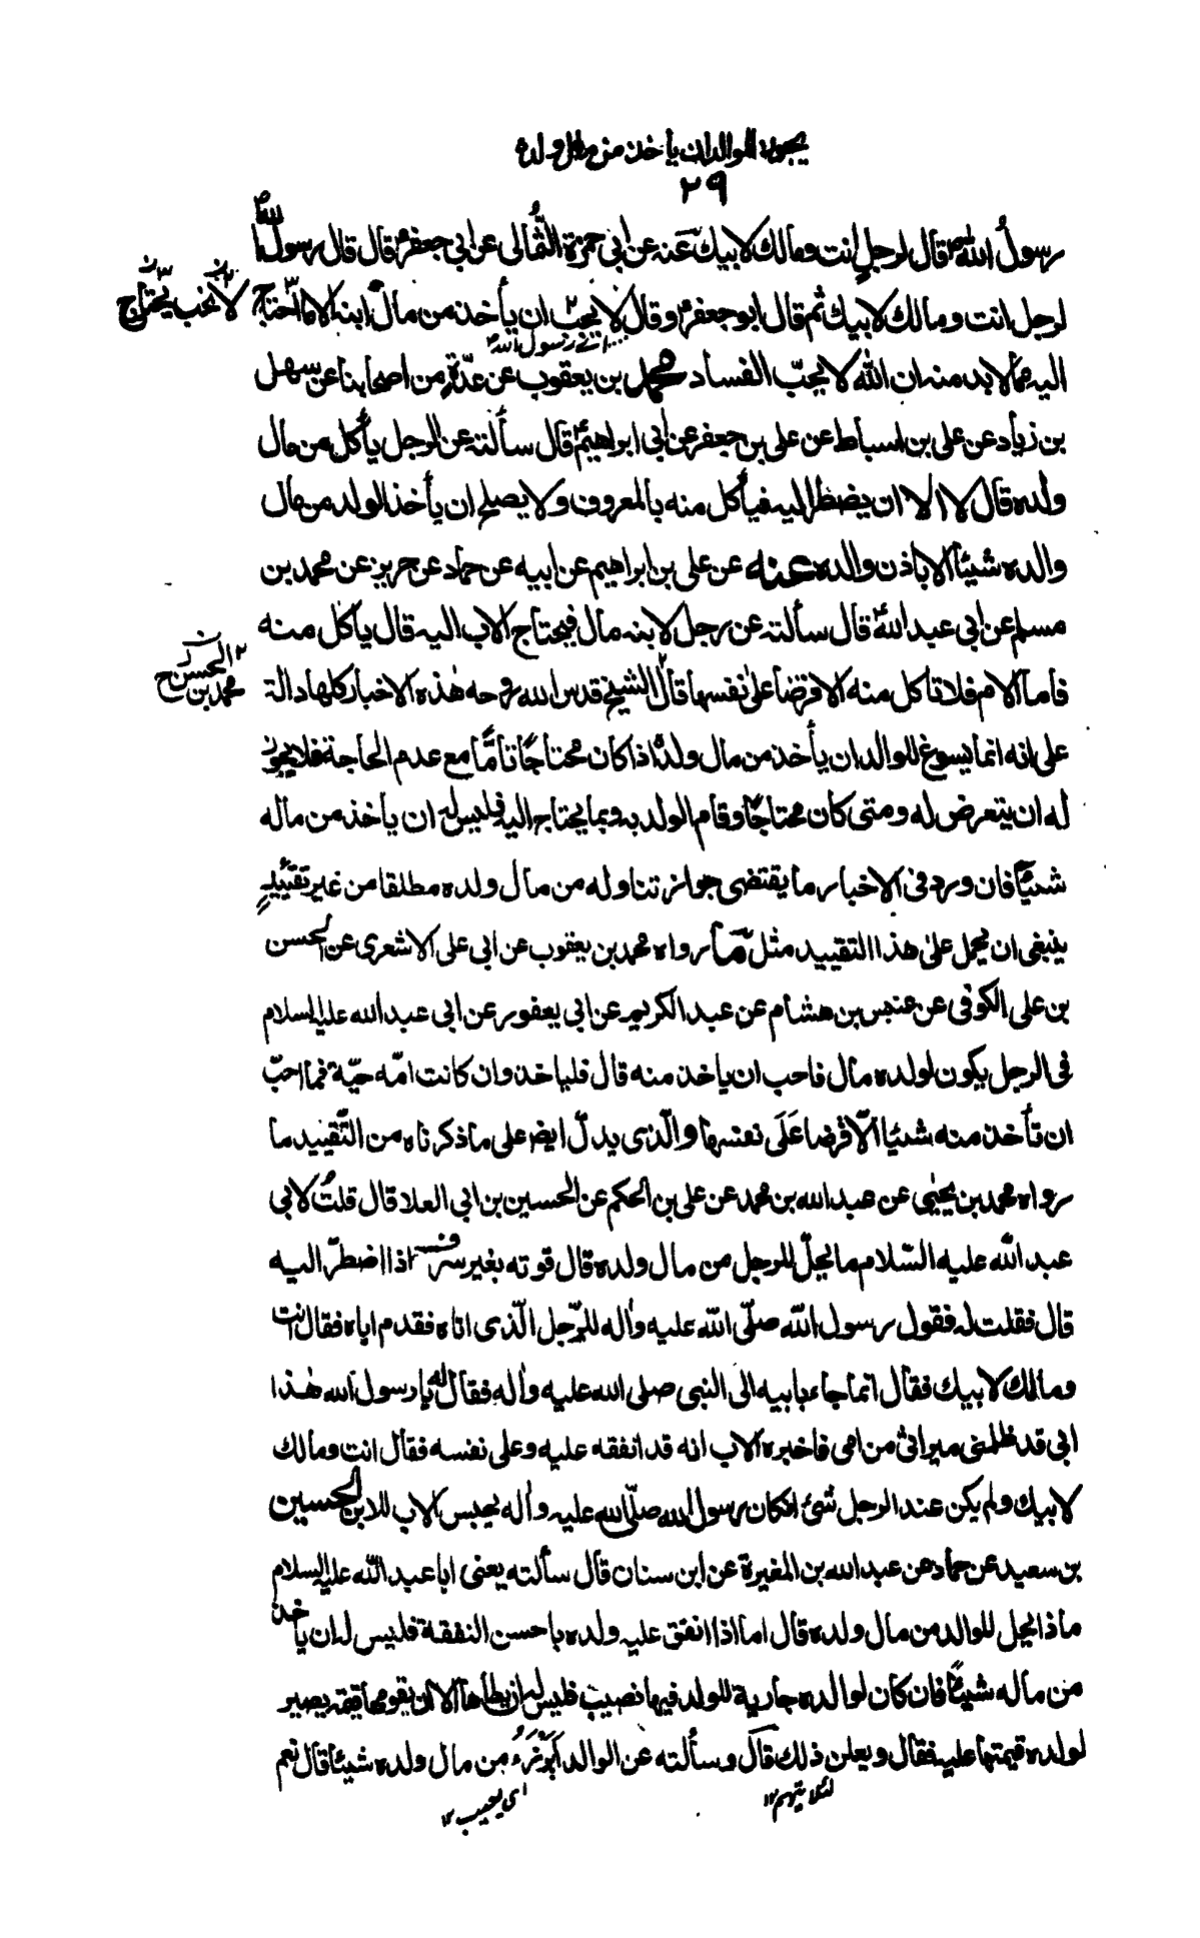 يجوز للوالد ان يأخذ من مال ولده
٢٩
رسولُ الله ص قال لرجلٍ انت ومالك لابيك عَنه عن ابي حمزة الثُّمالى عن ابي جعفرؑ قال قال رسول اللهؐ
لرجل انت ومالك لابيك ثم قال ابو جعفرؑ وقال لا يحبّ ان يأخذ من مال ابنه الا ما احتاج
لا نحب يحتاج
رسول الله
اليه مما لا بد منه ان الله لا يحبّ الفساد محمد بن يعقوب عن عدّةٍ من اصحابنا عن سهل
بن زياد عن على بن اسباط عن على بن جعفر عن ابى ابراهيمؑ قال سألته عن الرجل يأكل من مال
ولده قال لا الا ان يضطر اليه فيأكل منه بالمعروف ولا يصلح ان يأخذ الولد من مال
والده شيئا الا باذن والده عنه عن على بن ابراهيم عن ابيه عن حماد عن حريز عن محمد بن
مسلم عن ابي عبد اللهؑ قال سألته عن رجل لابنه مال فيحتاج الاب اليه قال يأكل منه
فاما الام فلا تاكل منه الا قرضا على نفسها قال الشيخ قدس الله روحه هٰذه الاخبار كلها دالة
٢ محمد بن الحسن
على انه انما يسوغ للوالد ان يأخذ من مال ولده اذا كان محتاجًا تامًّا مع عدم الحاجة فلا يجوز
له ان يتعرض له ومتى كان محتاجًا وقام الولد به وبما يحتاج اليه فليس له ان يأخذ من ماله
شيئًا فان ورد فى الاخبار ما يقتضى جواز تناوله من مال ولده مطلقا من غير تقييدٍ
ينبغى ان يحمل على هذا التقييد مثل ما رواه محمد بن يعقوب عن ابى على الاشعرى عن الحسن
بن على الكوفى عن عنبس بن هشام عن عبد الكريم عن ابي يعفور عن ابى عبد الله عليه السلام
فى الرجل يكون لولده مال فاحب ان ياخذ منه قال فلياخذ وان كانت امّه حيّة فما احبّ
ان تأخذ منه شيئا الّا قرضا عَلَى نفسها والّذى يدلّ ايضا على ما ذكرناه من التّقييد ما
رواه محمد بن يحيٰى عن عبد الله بن محمد عن على بن الحكم عن الحسين بن ابى العلا قال قلتُ لابى
عبد الله عليه السّلام ما يحلّ للرجل من مال ولده قال قوته بغير سرف اذا اضطرّ اليه
قال فقلت له فقول رسول الله صلّى الله عليه واٰله للرّجل الّذى اتاه فقدم اباه فقال انت
ومالك لابيك فقال انما جاء بابيه الى النبى صلى الله عليه واٰله فقال له يا رسول الله هٰذا
ابى قد ظلمنى ميراثى من امى فاخبره الاب انه قد انفقه عليه وعلى نفسه فقال انت ومالك
لابيك ولم يكن عند الرجل شئ افكان رسول الله صلّى الله عليه واٰله يحبس الاب للابن الحسين
بن سعيد عن حماد عن عبد الله بن المغيرة عن ابن سنان قال سألته يعنى ابا عبد الله عليه السلام
ماذا يحل للوالد من مال ولده قال اما اذا انفق عليه ولده باحسن النفقة فليس له ان ياخذ
من ماله شيئًا فان كان لوالده جارية للولد فيها نصيب فليس له ان يطأها الا ان يقومها قيمة يصير
لولده قيمتها عليه فقال ويعلن ذلك قال وسألته عن الوالد أيَرْزَءُ من مال ولده شيئا قال نعم
لئلا يتهم ١٢
اى يعيب ١٢